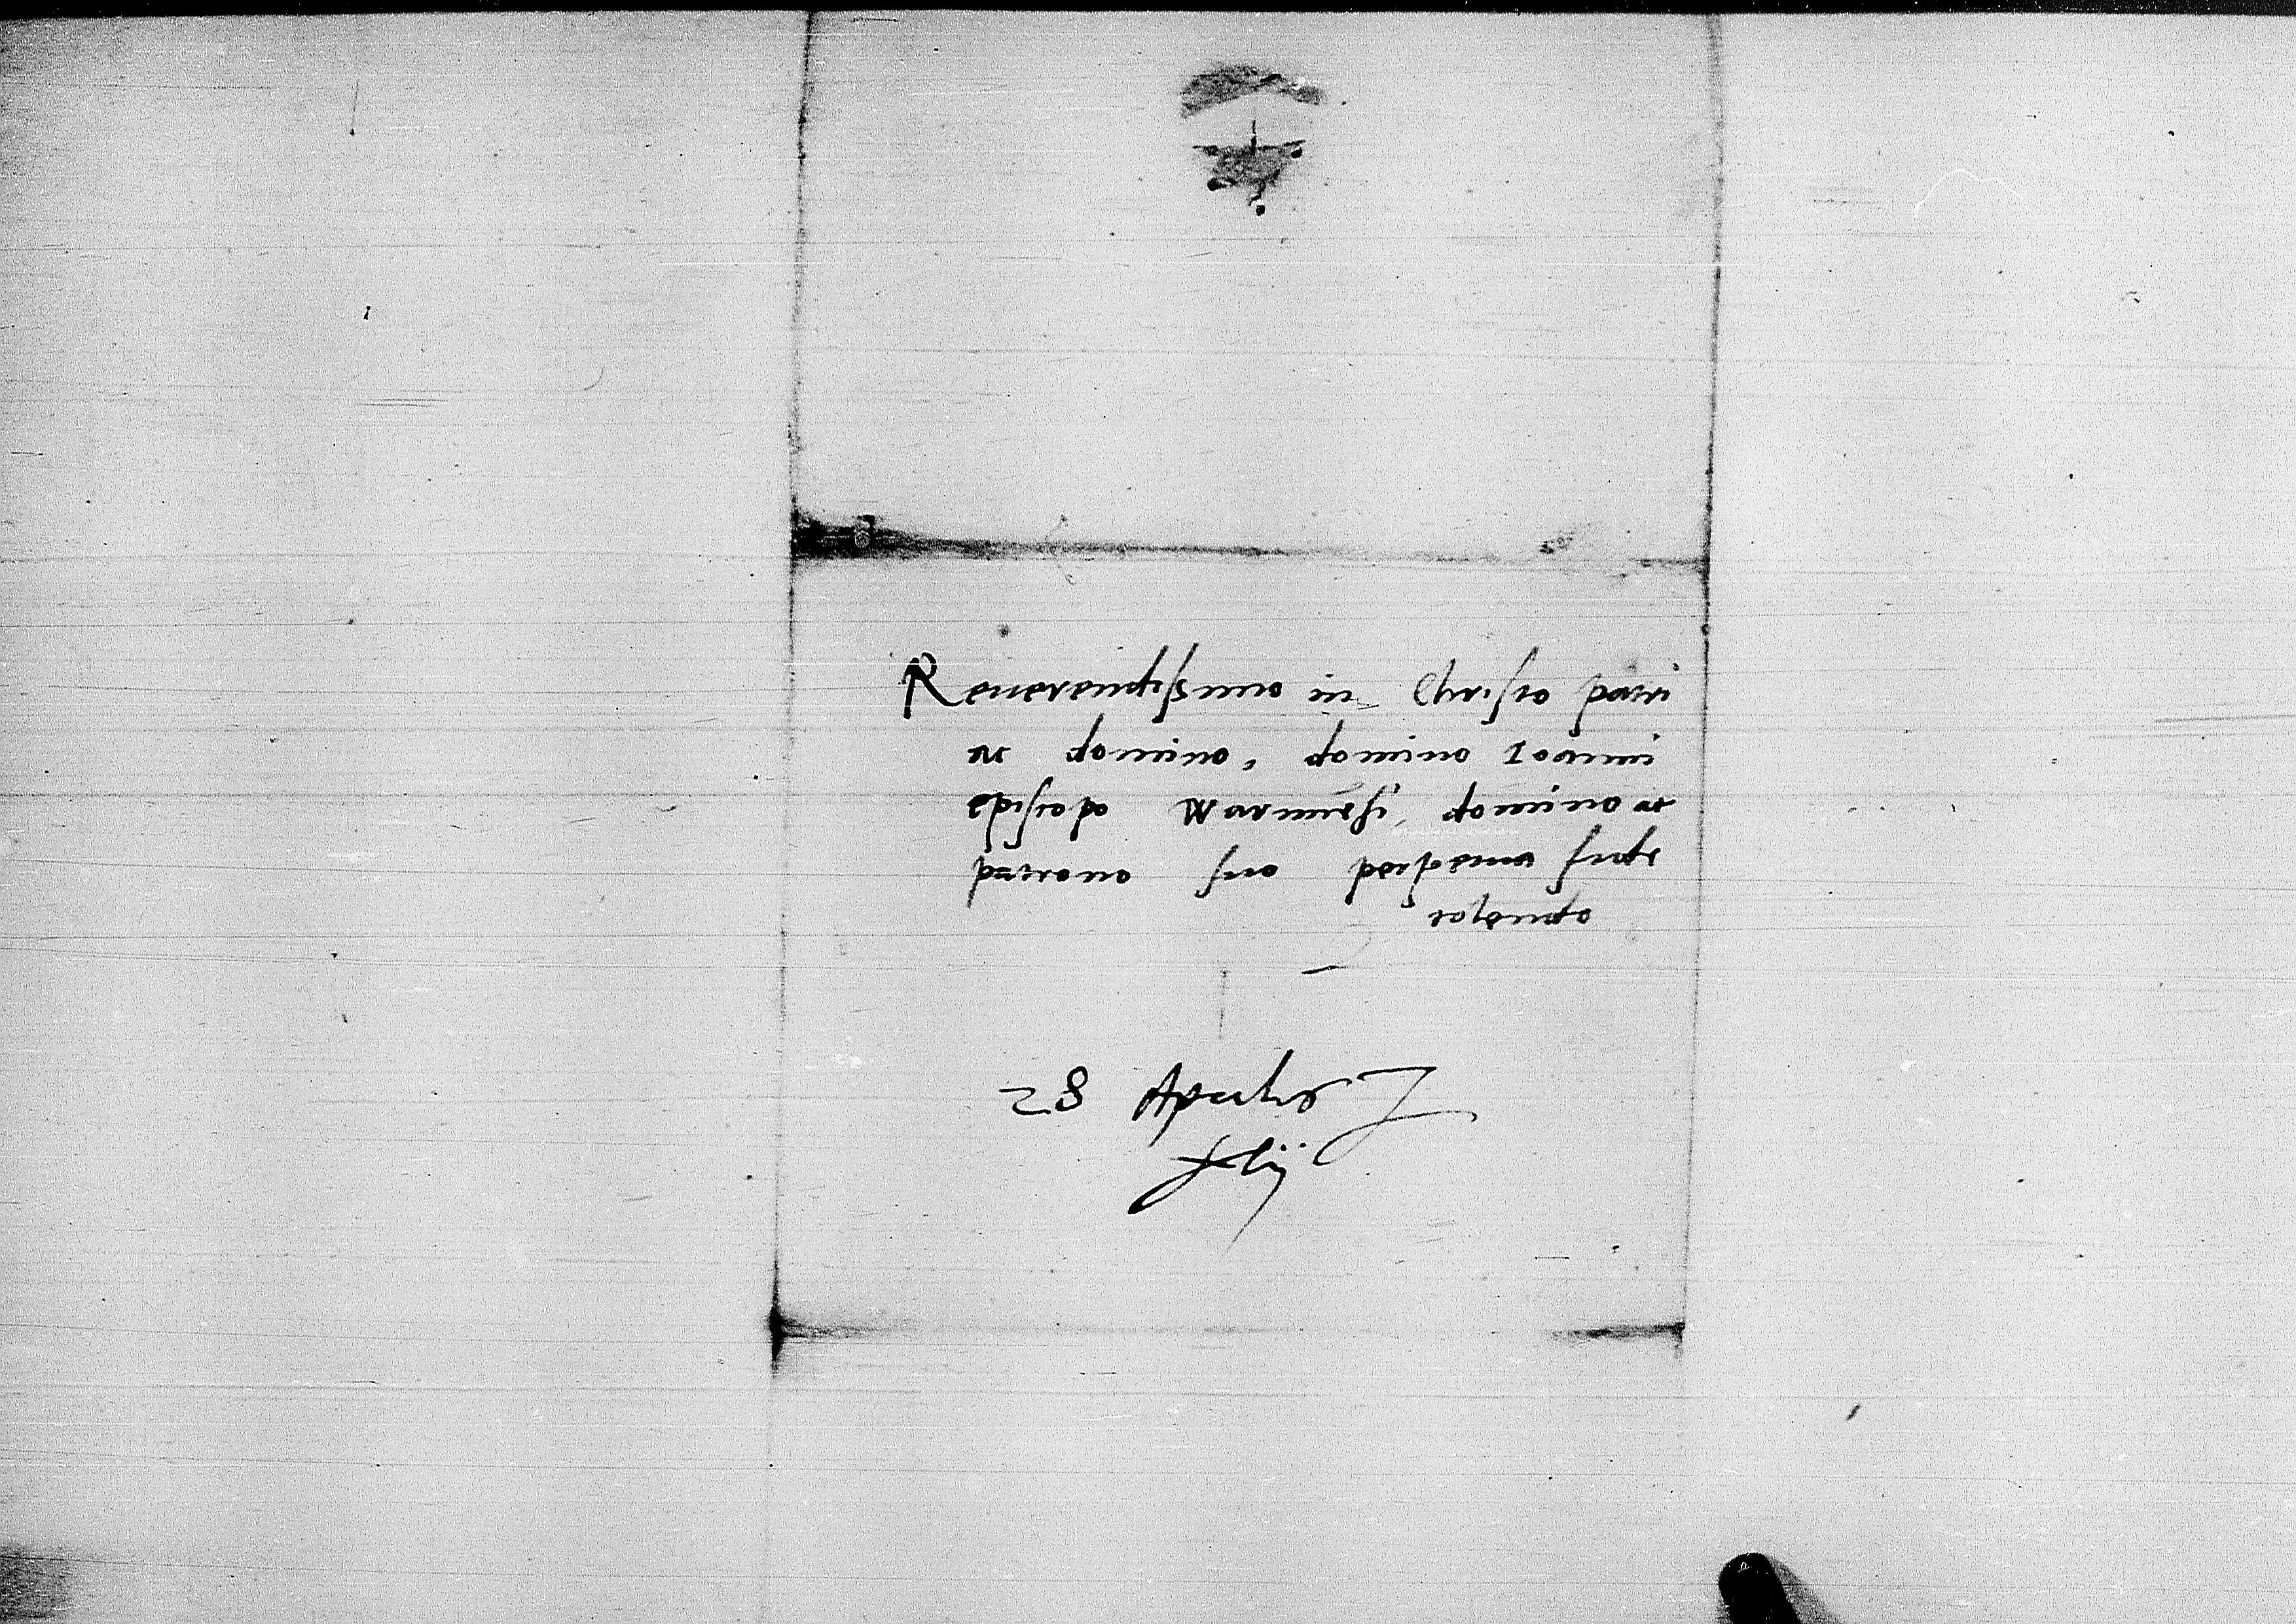 Reuerendissimo in Christo patri
ac domino, domino Ioanni
episcopo Warmieñsi, domino ac
patrono suo perpetua fide
colendo
28 Aprilis
xlij